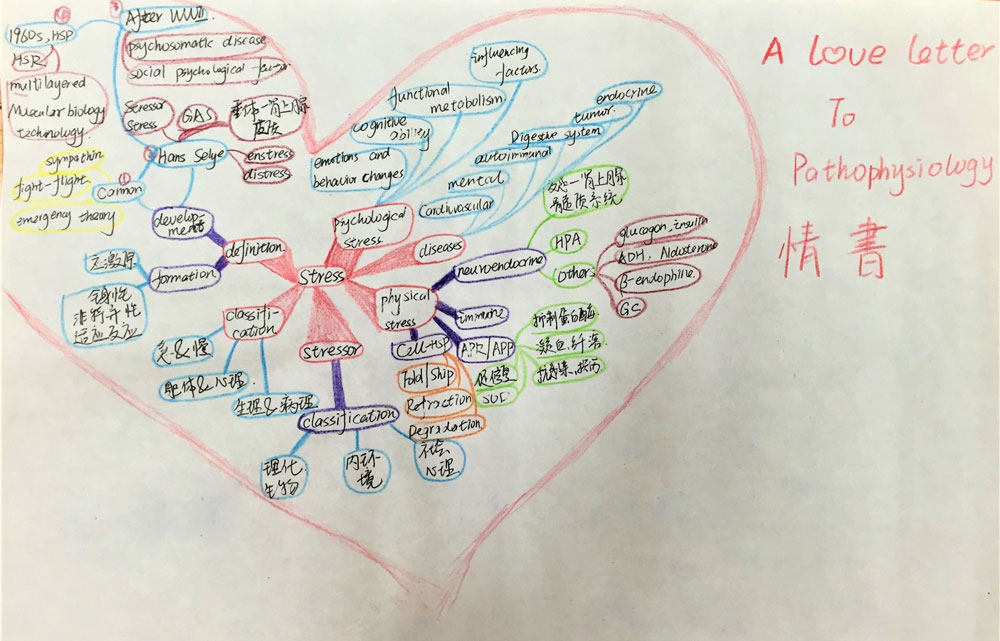 A Love Letter
To
Pathophysiology
情書
④
1960s, HSP
HSR
multilayered
technology
③
After WWII
psychosomatic disease
social psychological
Stressor
Stress
GAS
垂体-肾上腺
皮质
②
Hans Selye
enstress
distress
sympathin
fight-flight
emergency theory
①
Cannon
develop-
ment
definition
formation
应激原
全身性
非特异性
适应反应
classifi-
cation
急&慢
躯体&心理
生理&病理
Stress
stressor
classification
理化
生物
内环
境
社会
心理
psychological
stress
emotions and
behavior changes
cognitive
ability
functional
metabolism
influencing
factors
diseases
Cardiovascular
mental
autoimmunal
Digestive system
tumor
endocrine
physical
stress
neuroendocrine
髓质系统
HPA
Others
glucogon, insulin
ADH, Aldosterone
GC
immune
APR/APP
抑制蛋白酶
凝血.纤溶
Cell-HSP
Fold/Ship
Refraction
Degradation